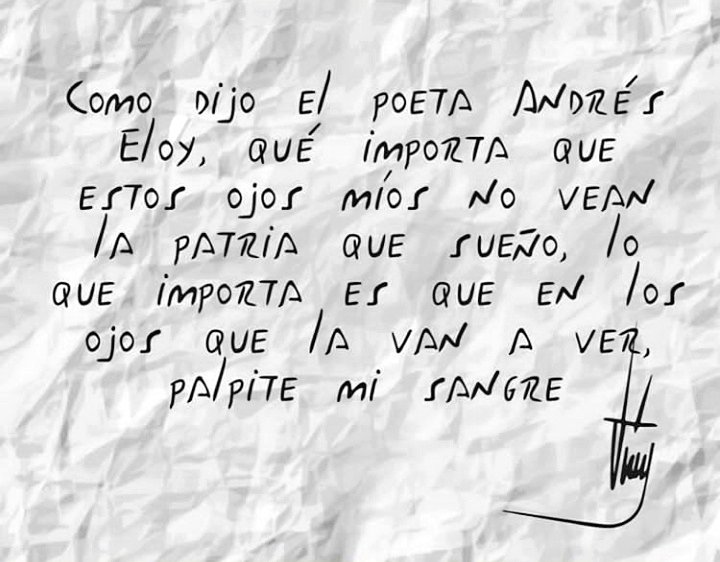 Como dijo el poeta Andrés
Eloy, qué importa que
estos ojos míos no vean
la patria que sueño, lo
que importa es que en los
ojos que la van a ver,
palpite mi sangre